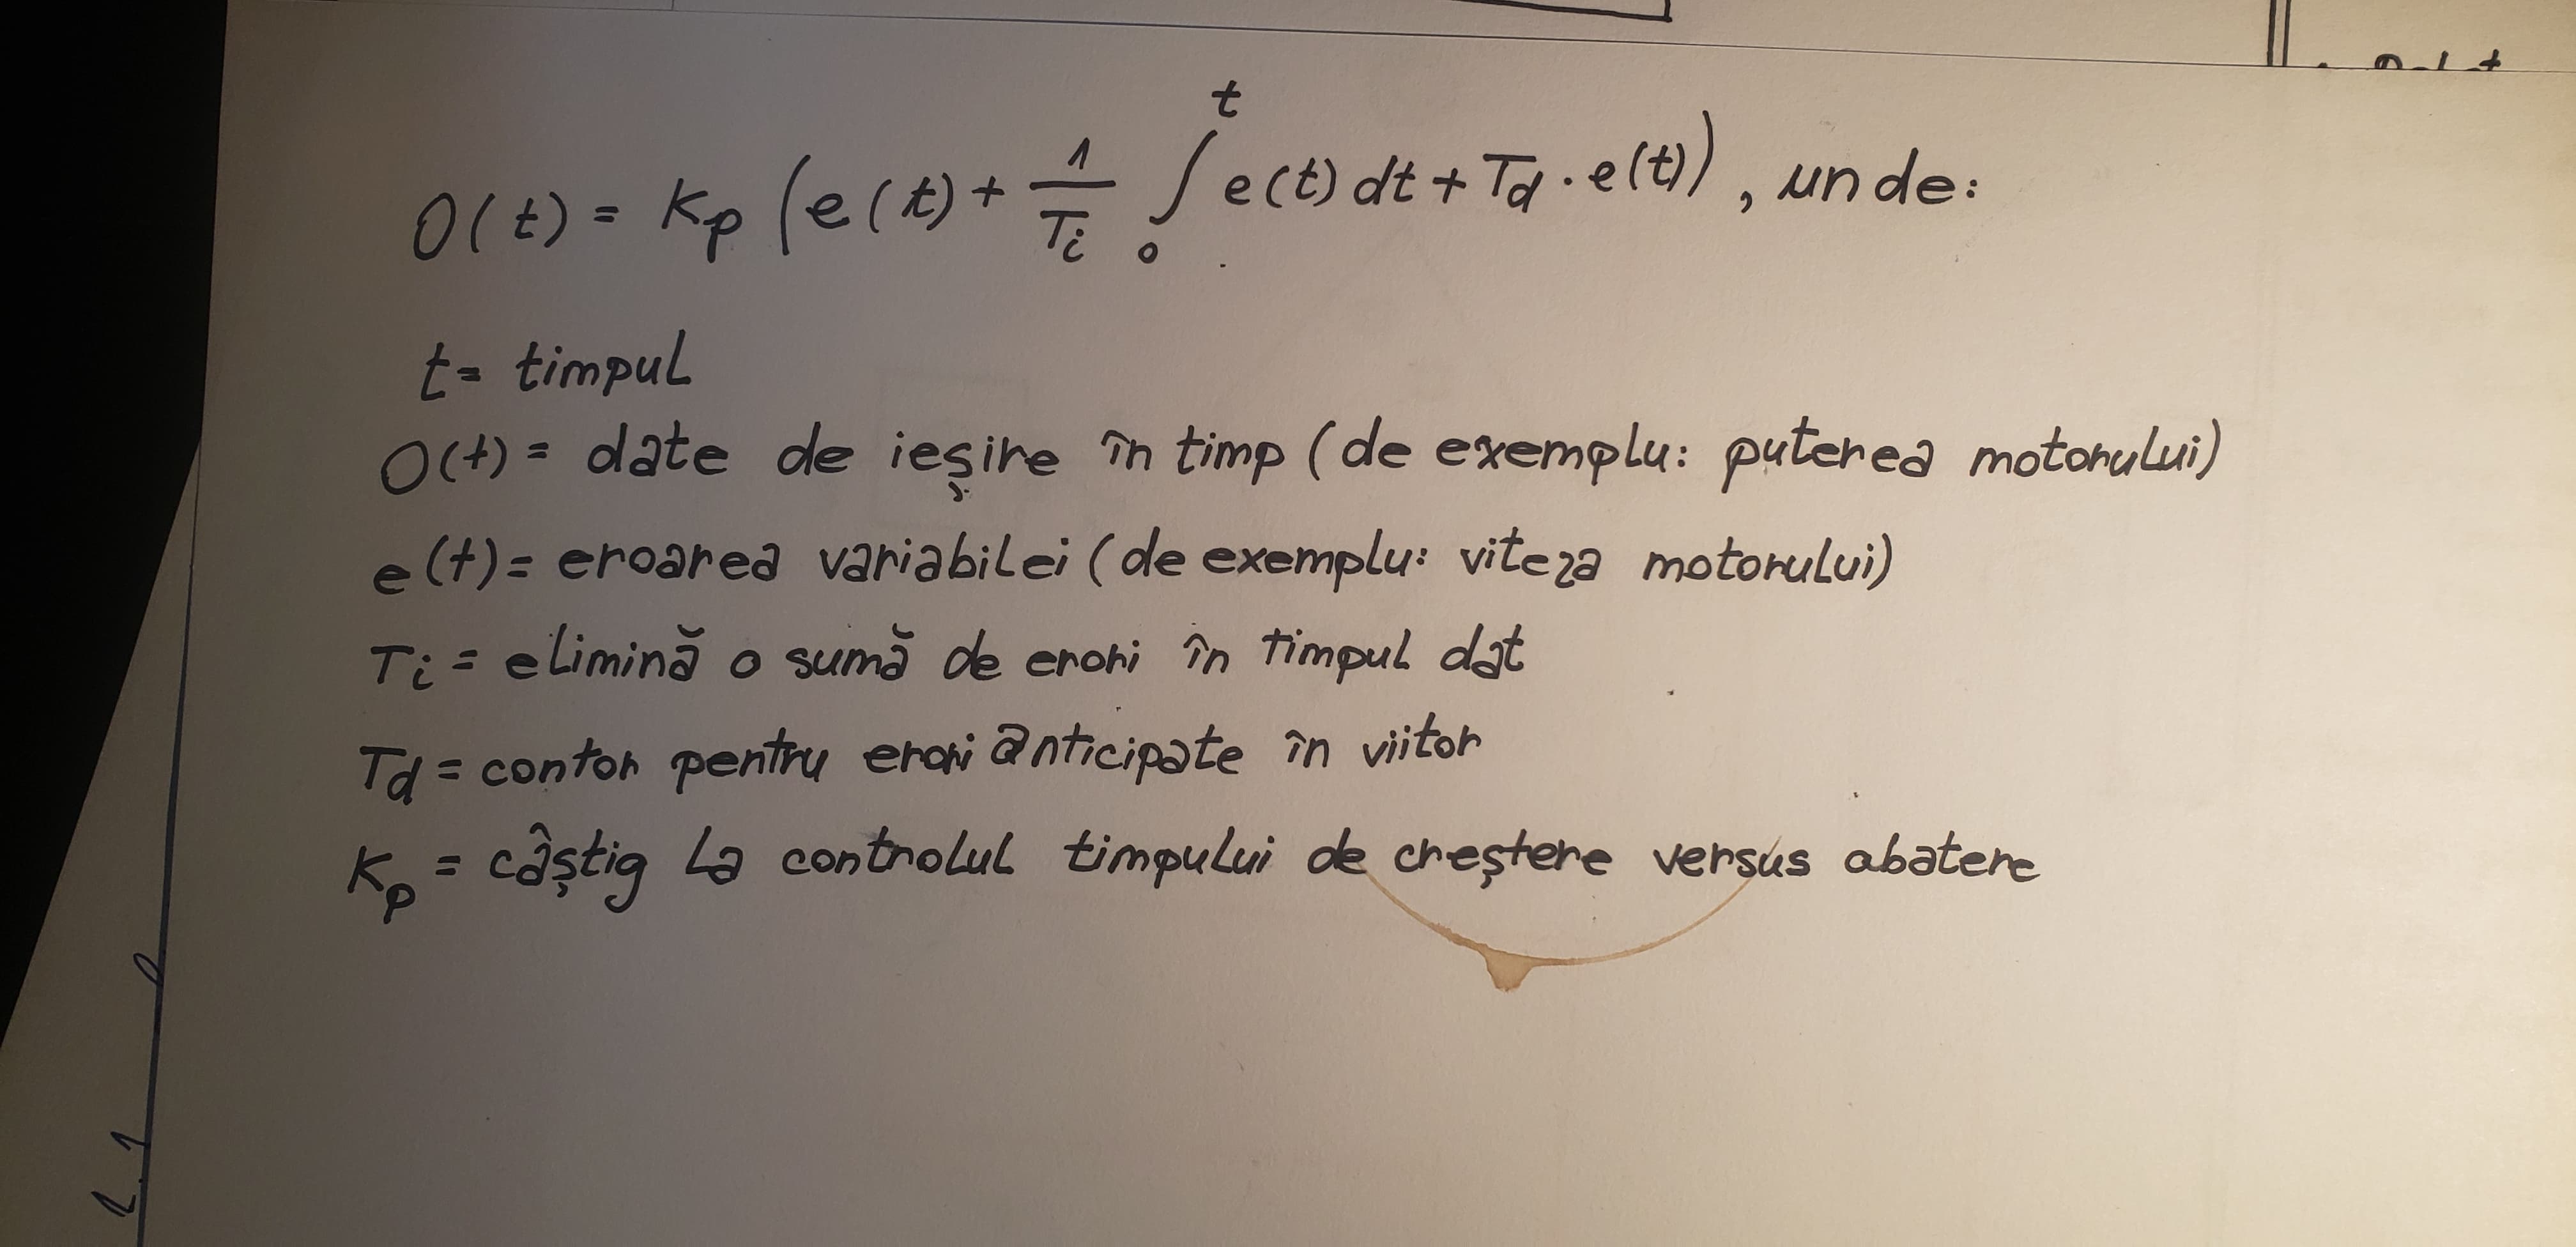 O(t) = Kp (e(t) + 1/Ti ∫₀ᵗ e(t) dt + Td · e(t)), unde:
t = timpul
O(t) = date de ieșire în timp (de exemplu: puterea motorului)
e(t) = eroarea variabilei (de exemplu: viteza motorului)
Ti = elimină o sumă de erori în timpul dat
Td = contor pentru erori anticipate în viitor
Kp = câștig la controlul timpului de creștere versus abatere